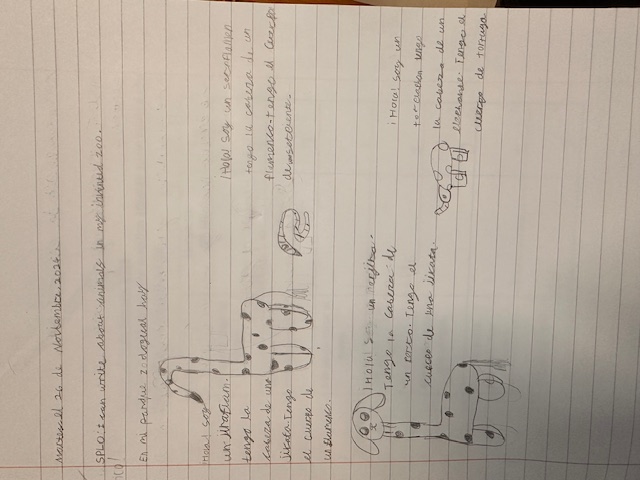 martes el 26 de Noviembre 2024.
SPLO: I can write about animals in my invined zoo.
LCO!
En mi parque zoologual hay
¡Hola! soy
un jiraflam.
tengo la
cabeza de una
jirafa. Tengo
el cuerpo de
un flamenco.
tengo la cabeza de un
flamenco. Tengo el cuerpo
¡Hola! soy un
Tengo la cabeza de
un osito. Tengo el
cuerpo de una jirafa.
¡Hola! soy un
tengo
la cabeza de un
elefante. Tengo el
cuerpo de tortuga.